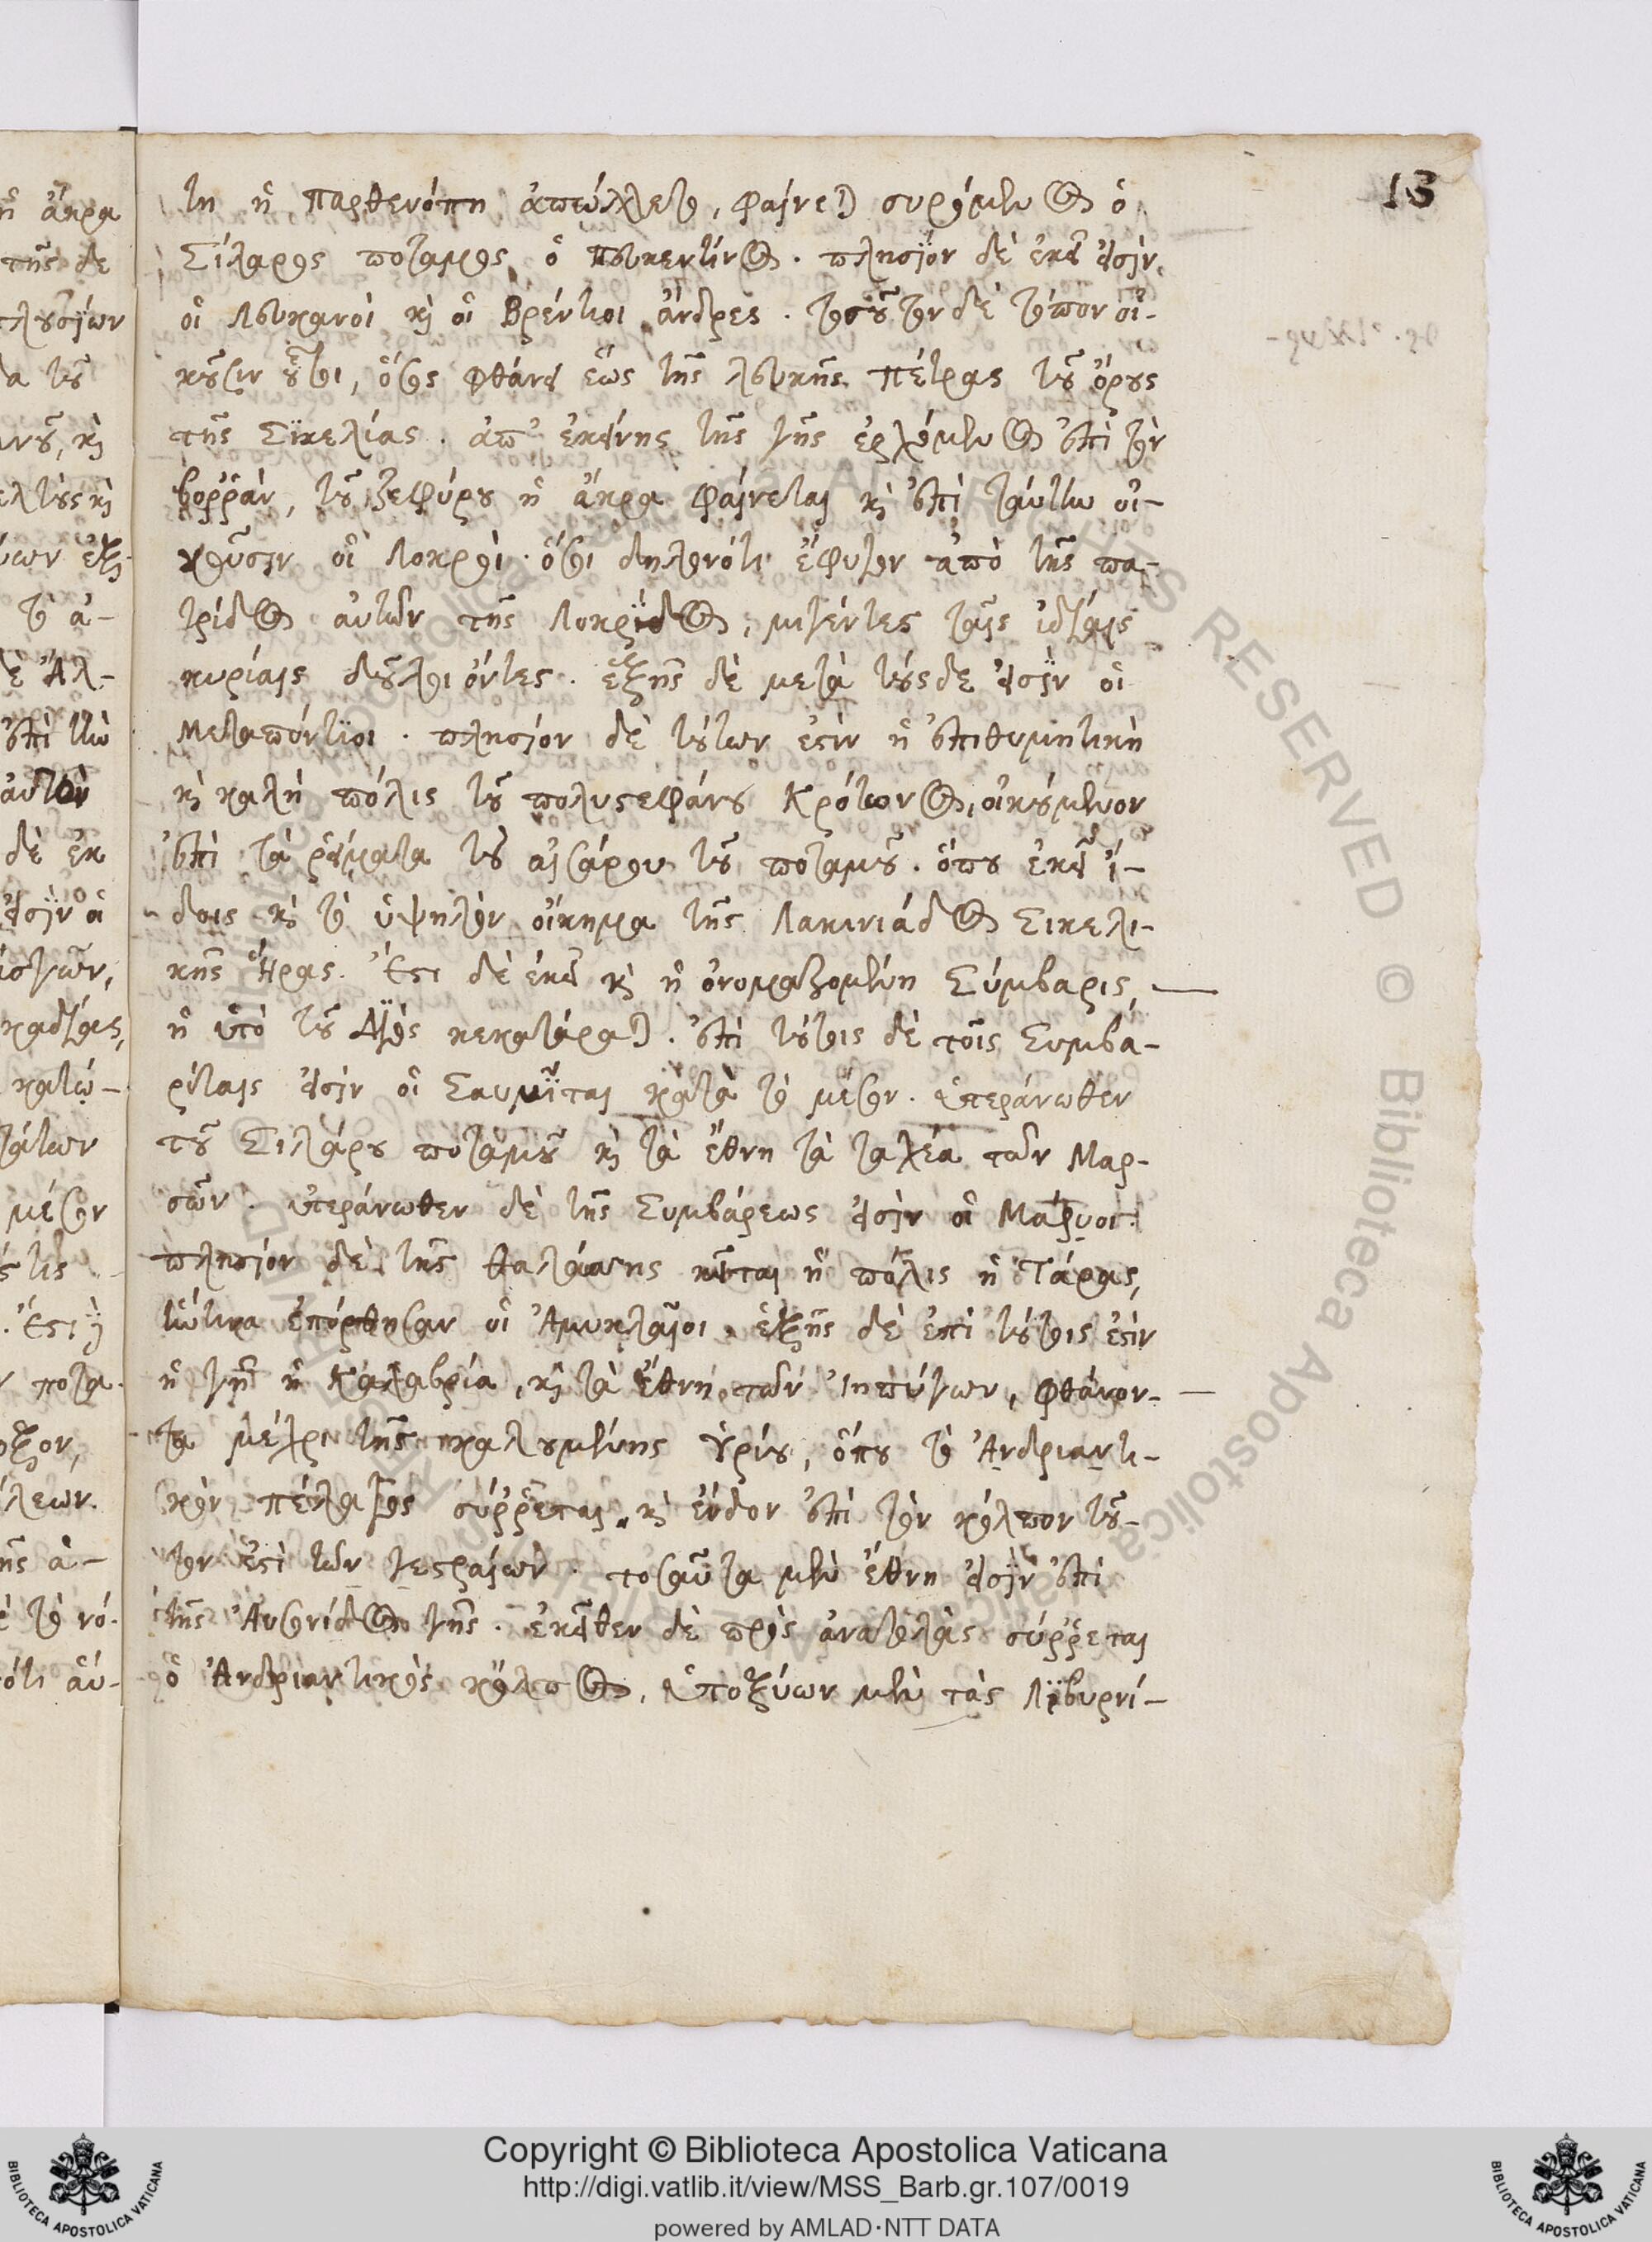 13
τη ἡ Παρθενόπη ἀπώλλετο, φαίνεται συρόμενος ὁ
Σίλαρος ποταμος, ὁ πευκεντίνος. πλησίον δὲ ἐκεῖ εἰσὶν
οἱ Λευκανοὶ καὶ οἱ Βρέντιοι ἄνδρες. τοσοῦτον δὲ τόπον οἰ-
κοῦσιν οὗτοι, ὅσος φθάνει ἕως τῆς λευκῆς πέτρας τοῦ ὄρους
τῆς Σϊκελίας. ἀπ' ἐκείνης τῆς γῆς ἐρχόμενος ἐπὶ τὸν
βοῤῥὰν, τοῦ ζεφύρου ἡ ἄκρα φαίνεται καὶ ἐπὶ ταύτην οἰ-
κοῦσιν οἱ Λοκροὶ. ὅσοι δηλονότι ἔφυγον ἀπὸ τῆς πα-
τρίδος αὐτῶν τῆς Λοκρίδος, μιγέντες ταῖς ἰδίαις
κυρίαις δοῦλοι ὄντες. ἑξῆς δὲ μετὰ τούσδε εἰσὶν οἱ
Μεταπόντϊοι. πλησίον δὲ τούτων ἐστὶν ἡ ἐπιθυμητικὴ
καὶ καλὴ πόλις τοῦ πολυστεφάνου Κρότωνος, οἰκούμενον
ἐπὶ τὰ ῥεύματα τοῦ αἰσάρου τοῦ ποταμοῦ. ὅπου ἐκεῖ ἴ-
δοις καὶ τὸ ὑψηλὸν οἴκημα τῆς Λακινιάδος Σικελι-
κῆς Ἥρας. Ἔστι δὲ ἐκεῖ καὶ ἡ ὀνομαζομένη Σύμβαρις,
ἡ ὑπὸ τοῦ Διὸς κεκατάραται. ἐπὶ τούτοις δὲ τοῖς Συμβα-
ρίταις εἰσὶν οἱ Σαυνῖται κατὰ τὸ μέσον. ὑπεράνωθεν
τοῦ Σιλάρου ποταμοῦ καὶ τὰ ἔθνη τὰ ταχέα τῶν Μαρ-
σῶν. ὑπεράνωθεν δὲ τῆς Συμβάρεως εἰσὶν οἱ
πλησίον δὲ τῆς θαλάσσης κεῖται ἡ πόλις ἡ Τάρας,
ἥντινα ἐπόρθησαν οἱ Ἀμυκλαῖοι. ἑξῆς δὲ ἐπὶ τούτοις ἐστὶν
ἡ γῆ ἡ Καλαβρία, καὶ τὰ ἔθνη τῶν Ἰηπύγων, φθάνον-
τα μέχρι τῆς καλουμένης Ὑρίου, ὅπου τὸ Ἀνδριαντι-
κὸν πέλαγος σύῤῥεται. καὶ ἔνδον ἐπὶ τὸν κόλπον τοῦ-
τον ἐστὶ τῶν. τοσαῦτα μὲν ἔθνη εἰσὶν ἐπὶ
τῆς Αὐσονίδος γῆς. ἐκεῖθεν δὲ πρὸς ἀνατολὰς σύῤῥεται
ὁ Ἀνδριαντικὸς κόλπος, ὑποξύων μὲν τὰς Λϊβυρνί-
Copyright © Biblioteca Apostolica Vaticana
http://digi.vatlib.it/view/MSS_Barb.gr.107/0019
powered by AMLAD·NTT DATA